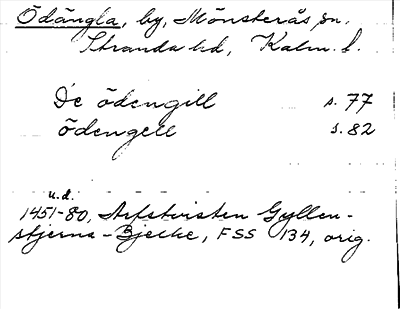 Ödängla, by, Mönsterås sn,
Stranda hd, Kalm. l.
I'e ödengill s. 77
ödengell s. 82
u.d.
1451-80, Arfstvisten Gyllen-
stjerna - Bjelke, FSS 134, orig.